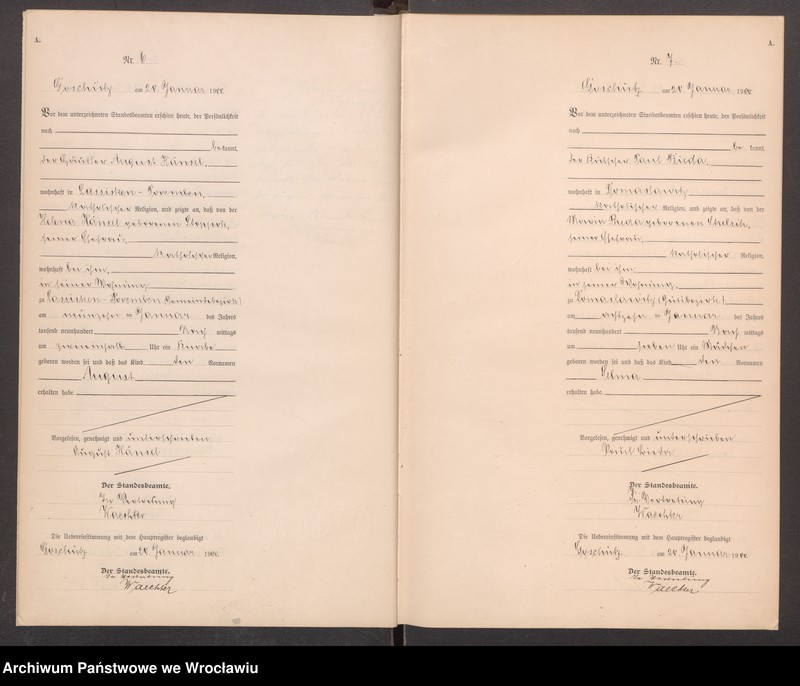 A.
Nr. 6
Goschütz am 20 Januar 1900.
Vor dem unterzeichneten Standesbeamten erschien heute, der Persönlichkeit
nach
be kannt,
der Häusler August Hänsel,
wohnhaft in
katholischer Religion, und zeigte an, daß von der
Hänsel geborenen
seiner Ehefrau,
katholischer Religion,
wohnhaft bei ihm,
in seiner Wohnung
zu
am Januar des Jahres
tausend neunhundert Nach mittags
um Uhr ein Knabe
geboren worden sei und daß das Kind den Vornamen
August
erhalten habe
Vorgelesen, genehmigt und unterschrieben
August Hänsel
Der Standesbeamte.
In Vertretung
Waechter
Die Uebereinstimmung mit dem Hauptregister beglaubigt
Goschütz am 20 Januar 1900.
Der Standesbeamte.
In Vertretung
Waechter
A.
Nr. 7
Goschütz am 20 Januar 1900.
Vor dem unterzeichneten Standesbeamten erschien heute, der Persönlichkeit
nach
be kannt,
der Kutscher Paul
wohnhaft in
katholischer Religion, und zeigte an, daß von der
geborenen
seiner Ehefrau,
katholischer Religion,
wohnhaft bei ihm
in seiner Wohnung,
zu
am achtzehn Januar des Jahres
tausend neunhundert Nach mittags
um sieben Uhr ein Mädchen
geboren worden sei und daß das Kind den Vornamen
Selma
erhalten habe
Vorgelesen, genehmigt und unterschrieben
Paul
Der Standesbeamte.
In Vertretung
Waechter
Die Uebereinstimmung mit dem Hauptregister beglaubigt
Goschütz am 20 Januar 1900.
Der Standesbeamte.
In Vertretung
Waechter
Archiwum Państwowe we Wrocławiu